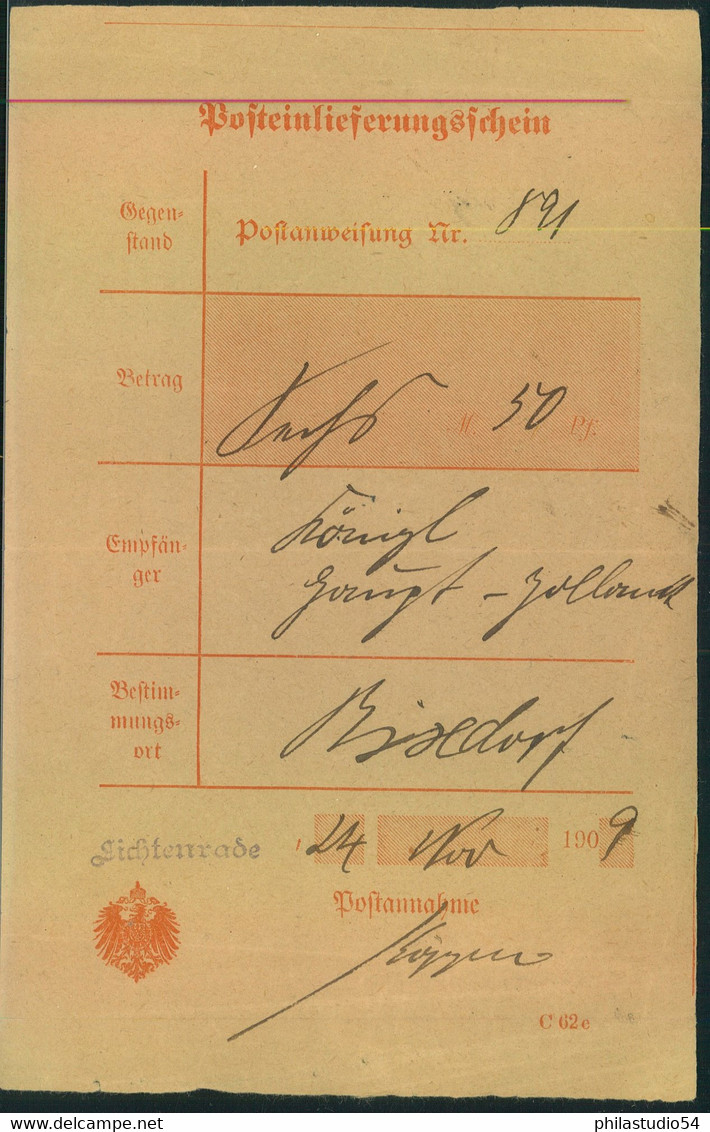 Posteinlieferungsschein
Gegen-
stand
Postanweisung Nr. 891
Betrag
Sechs M. 50 Pf.
Empfän-
ger
Königl
Haupt-Zollamt
Bestim-
mungs-
ort
Rixdorf
Lichtenrade, 24 Nov 1909
Postannahme
C 62e
delcampe.net
philastudio54